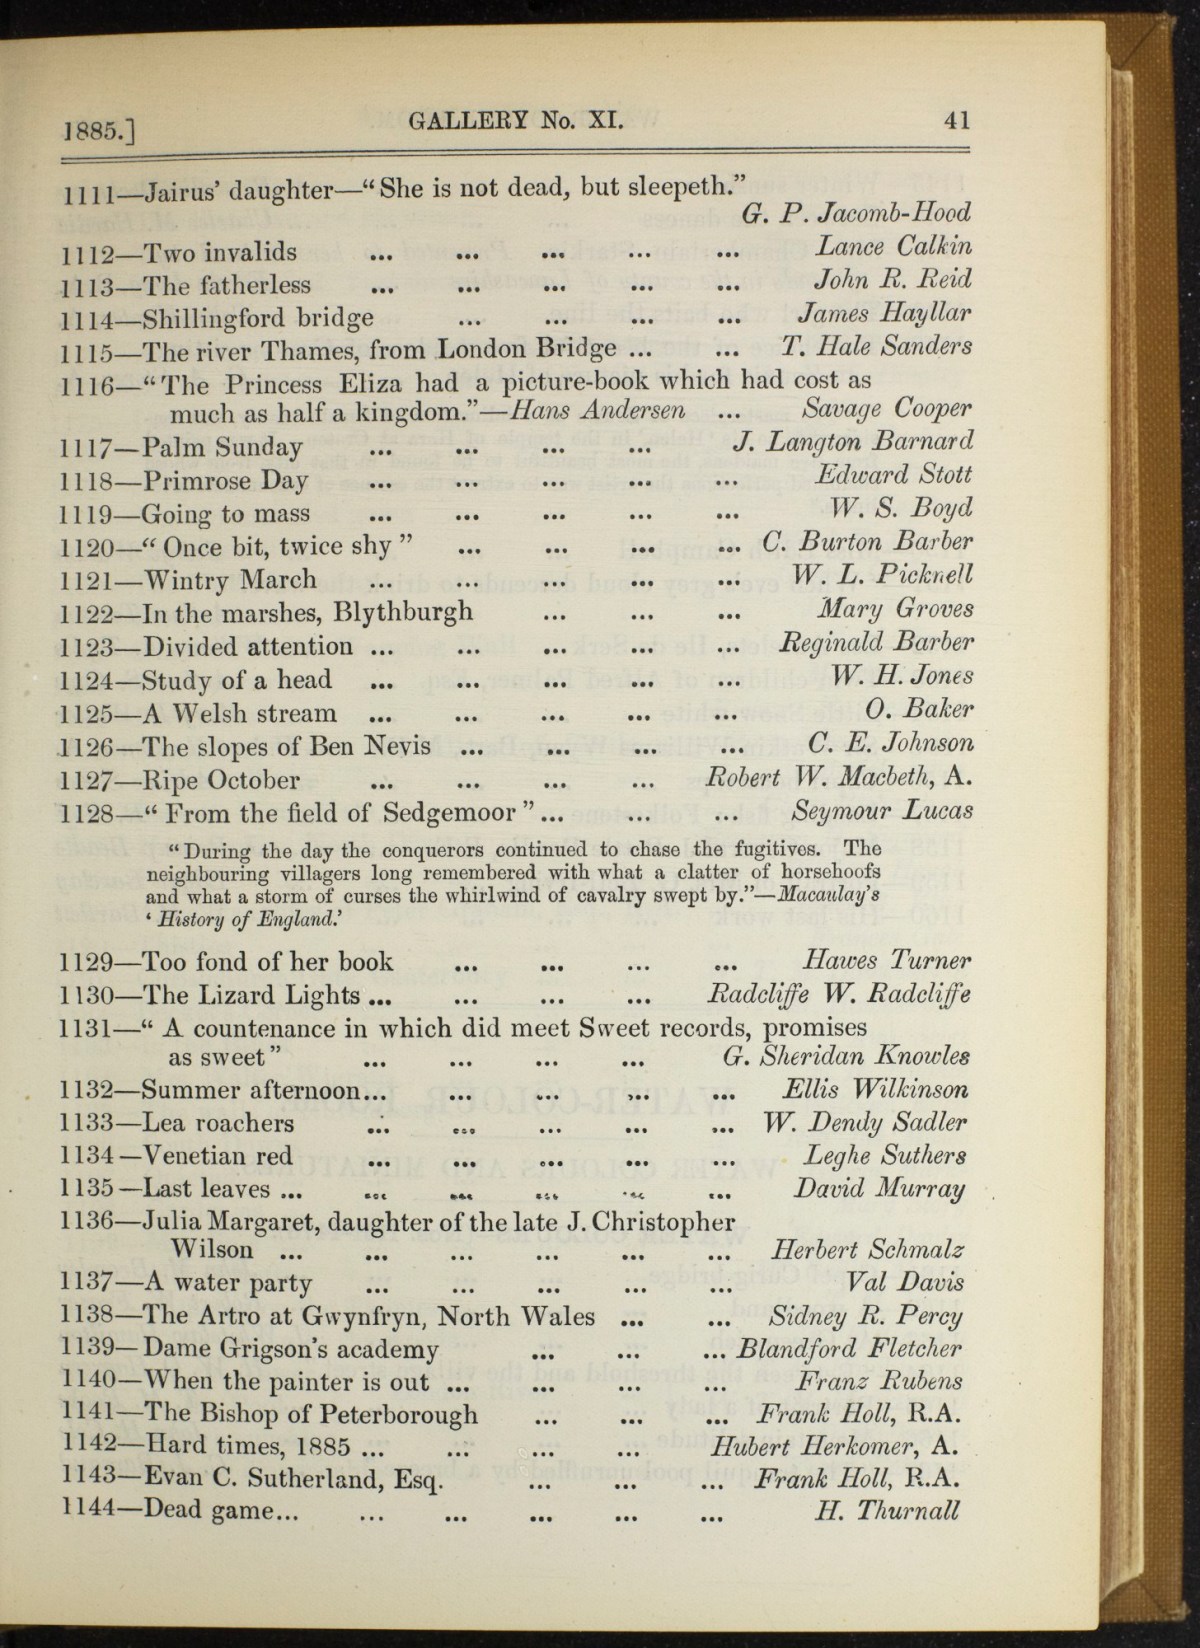 1885.] GALLERY No. XI. 41
1111—Jairus’ daughter—“She is not dead, but sleepeth.”
G. P. Jacomb-Hood
1112—Two invalids ... ... ... ... ... Lance Calkin
1113—The fatherless ... ... ... ... ... John R. Reid
1114—Shillingford bridge ... ... ... ... James Hayllar
1115—The river Thames, from London Bridge ... ... T. Hale Sanders
1116—“The Princess Eliza had a picture-book which had cost as
much as half a kingdom.”—Hans Andersen ... Savage Cooper
1117—Palm Sunday ... ... ... ... J. Langton Barnard
1118—Primrose Day ... ... ... ... ... Edward Stott
1119—Going to mass ... ... ... ... ... W. S. Boyd
1120—“Once bit, twice shy” ... ... ... ... C. Burton Barber
1121—Wintry March ... ... ... ... ... W. L. Picknell
1122—In the marshes, Blythburgh ... ... ... Mary Groves
1123—Divided attention ... ... ... ... ... Reginald Barber
1124—Study of a head ... ... ... ... ... W. H. Jones
1125—A Welsh stream ... ... ... ... ... O. Baker
1126—The slopes of Ben Nevis ... ... ... ... C. E. Johnson
1127—Ripe October ... ... ... ... Robert W. Macbeth, A.
1128—“From the field of Sedgemoor” ... ... ... Seymour Lucas
“During the day the conquerors continued to chase the fugitives. The
neighbouring villagers long remembered with what a clatter of horsehoofs
and what a storm of curses the whirlwind of cavalry swept by.”—Macaulay’s
‘History of England.’
1129—Too fond of her book ... ... ... ... Hawes Turner
1130—The Lizard Lights ... ... ... ... Radcliffe W. Radcliffe
1131—“A countenance in which did meet Sweet records, promises
as sweet” ... ... ... ... G. Sheridan Knowles
1132—Summer afternoon... ... ... ... ... Ellis Wilkinson
1133—Lea roachers ... ... ... ... ... W. Dendy Sadler
1134—Venetian red ... ... ... ... ... Leghe Suthers
1135—Last leaves ... ... ... ... ... ... David Murray
1136—Julia Margaret, daughter of the late J. Christopher
Wilson ... ... ... ... ... ... Herbert Schmalz
1137—A water party ... ... ... ... ... Val Davis
1138—The Artro at Gwynfryn, North Wales ... ... Sidney R. Percy
1139—Dame Grigson’s academy ... ... ... Blandford Fletcher
1140—When the painter is out ... ... ... ... Franz Rubens
1141—The Bishop of Peterborough ... ... ... Frank Holl, R.A.
1142—Hard times, 1885 ... ... ... ... Hubert Herkomer, A.
1143—Evan C. Sutherland, Esq. ... ... ... Frank Holl, R.A.
1144—Dead game... ... ... ... ... ... H. Thurnall